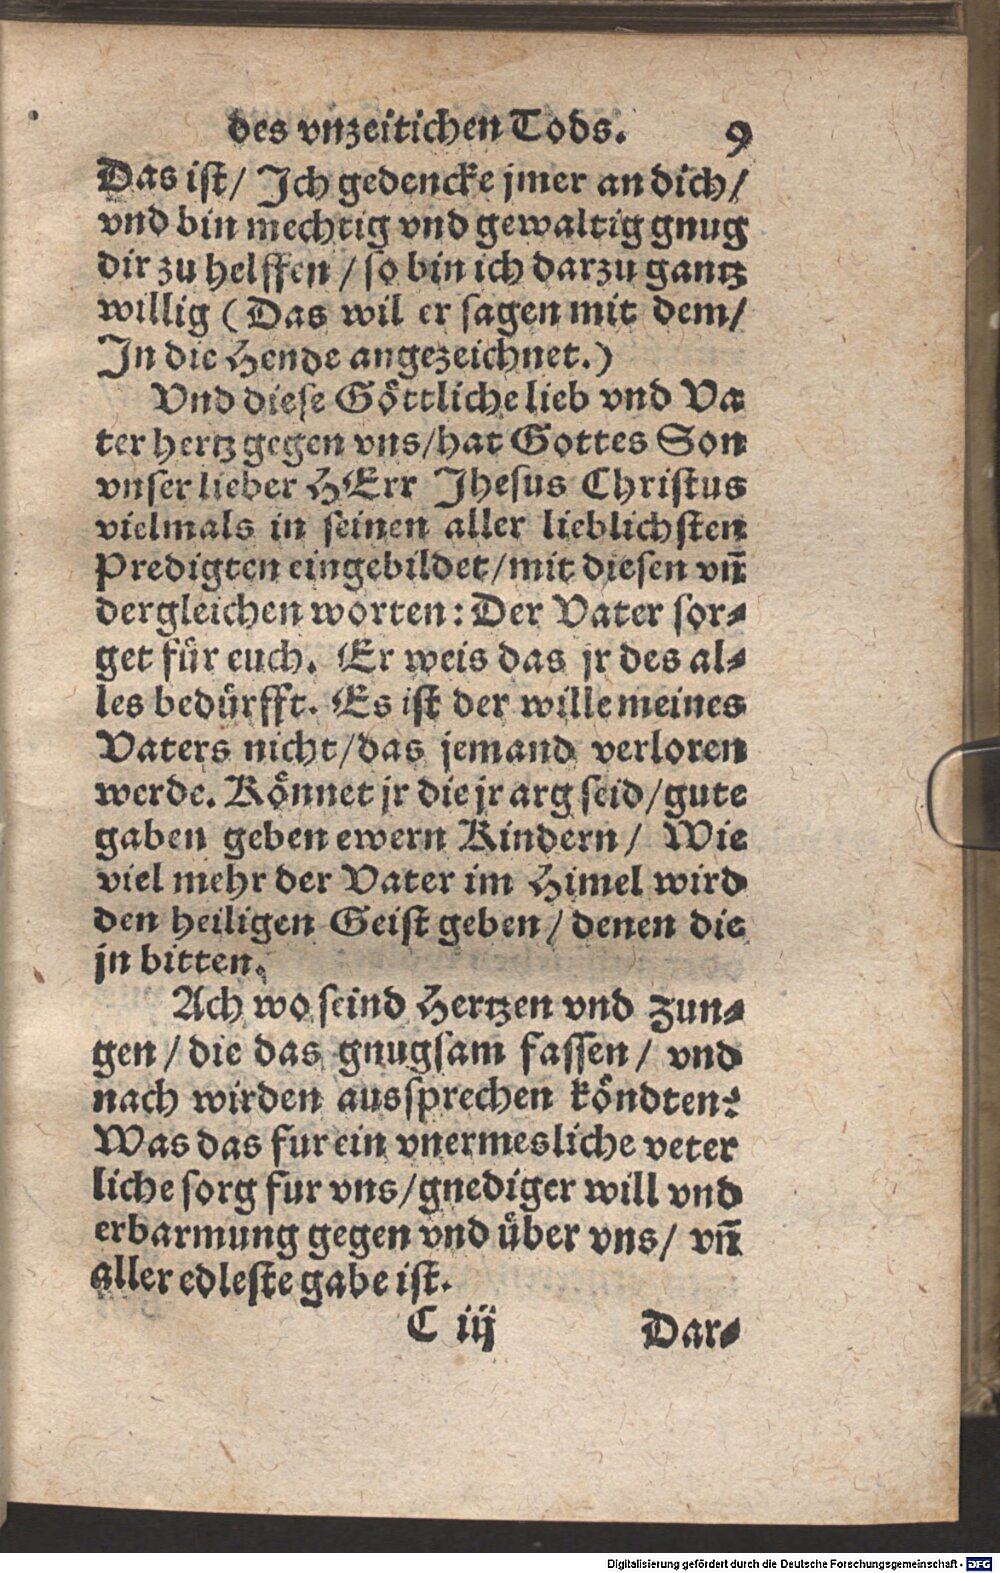 des vnzeitichen Tods. 9
Das ist/ Ich gedencke jmer an dich/
vnd bin mechtig vnd gewaltig gnug
dir zu helffen / so bin ich darzu gantz
willig (Das wil er sagen mit dem/
In die Hende angezeichnet.)
Vnd diese Göttliche lieb vnd Va
ter hertz gegen vns/hat Gottes Son
vnser lieber HErr Jhesus Christus
vielmals in seinen aller lieblichsten
Predigten eingebildet/mit diesen vn̄
dergleichen worten: Der Vater sor⸗
get für euch. Er weis das jr des al⸗
les bedürfft. Es ist der wille meines
Vaters nicht/das jemand verloren
werde. Könnet jr die jr arg seid/gute
gaben geben ewern Kindern/ Wie
viel mehr der Vater im Himel wird
den heiligen Geist geben/ denen die
jn bitten.
Ach wo seind Hertzen vnd zun⸗
gen/ die das gnugsam fassen/ vnd
nach wirden aussprechen köndten?
Was das fur ein vnermesliche veter
liche sorg fur vns/gnediger will vnd
erbarmung gegen vnd über vns/ vn̄
aller edleste gabe ist.
C iij Dar⸗
Digitalisierung gefördert durch die Deutsche Forschungsgemeinschaft - DFG